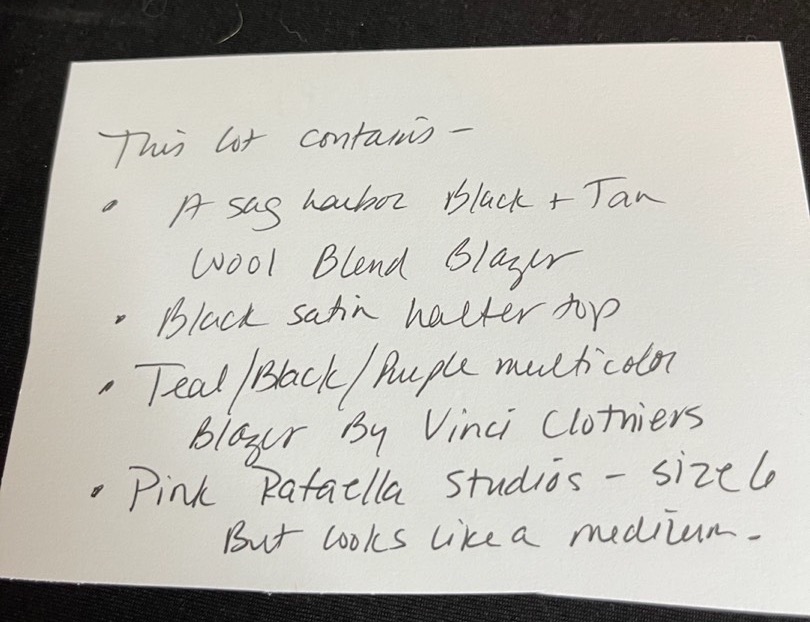 This lot contains -
• A sag harbor Black + Tan
Wool Blend Blazer
• Black satin halter top
• Teal/Black/Purple multicolor
Blazer By Vinci Clothiers
• Pink Rafaella Studios - size 6
But looks like a medium.